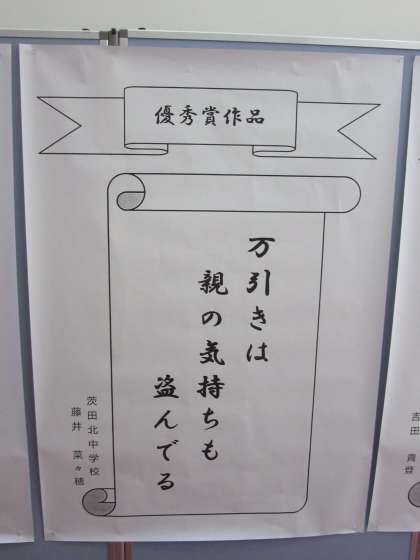 優秀賞作品
万引きは
親の気持ちも
盗んでる
茨田北中学校
藤井 菜々穂
吉田